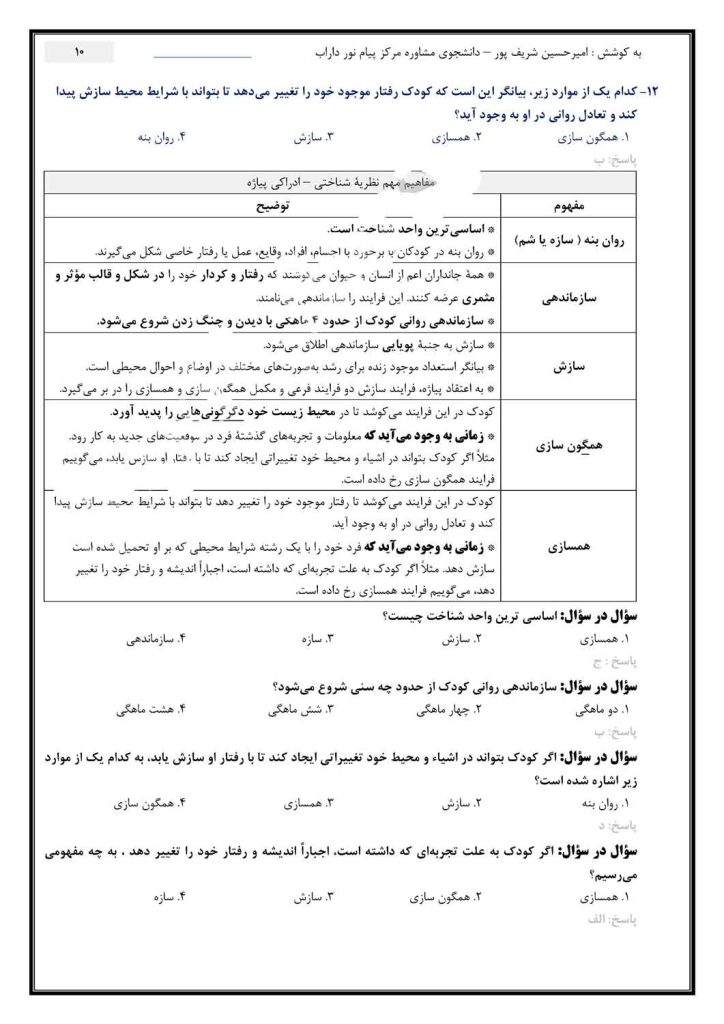 به کوشش : امیرحسین شریف پور – دانشجوی مشاوره مرکز پیام نور داراب
۱۰
۱۲- کدام یک از موارد زیر، بیانگر این است که کودک رفتار موجود خود را تغییر می‌دهد تا بتواند با شرایط محیط سازش پیدا
کند و تعادل روانی در او به وجود آید؟
۱. همگون سازی ۲. همسازی ۳. سازش ۴. روان بنه
پاسخ: ب
مفاهیم مهم نظریۀ شناختی – ادراکی پیاژه
مفهوم توضیح
روان بنه ( سازه یا شم)
* اساسی‌ترین واحد شناخت است.
* روان بنه در کودکان با برخورد با اجسام، افراد، وقایع، عمل یا رفتار خاصی شکل می‌گیرند.
سازماندهی
* همۀ جانداران اعم از انسان و حیوان می کوشند که رفتار و کردار خود را در شکل و قالب مؤثر و
مثمری عرضه کنند. این فرایند را سازماندهی می‌نامند.
* سازماندهی روانی کودک از حدود ۴ ماهگی با دیدن و چنگ زدن شروع می‌شود.
سازش
* سازش به جنبۀ پویایی سازماندهی اطلاق می‌شود.
* بیانگر استعداد موجود زنده برای رشد به‌صورت‌های مختلف در اوضاع و احوال محیطی است.
* به اعتقاد پیاژه، فرایند سازش دو فرایند فرعی و مکمل همگون سازی و همسازی را در بر می‌گیرد.
همگون سازی
کودک در این فرایند می‌کوشد تا در محیط زیست خود دگرگونی‌هایی را پدید آورد.
* زمانی به وجود می‌آید که معلومات و تجربه‌های گذشتۀ فرد در موقعیت‌های جدید به کار رود.
مثلاً اگر کودک بتواند در اشیاء و محیط خود تغییراتی ایجاد کند تا با رفتار او سازش یابد، می‌گوییم
فرایند همگون سازی رخ داده است.
همسازی
کودک در این فرایند می‌کوشد تا رفتار موجود خود را تغییر دهد تا بتواند با شرایط محیط سازش پیدا
کند و تعادل روانی در او به وجود آید.
* زمانی به وجود می‌آید که فرد خود را با یک رشته شرایط محیطی که بر او تحمیل شده است
سازش دهد. مثلاً اگر کودک به علت تجربه‌ای که داشته است، اجباراً اندیشه و رفتار خود را تغییر
دهد، می‌گوییم فرایند همسازی رخ داده است.
سؤال در سؤال: اساسی ترین واحد شناخت چیست؟
۱. همسازی ۲. سازش ۳. سازه ۴. سازماندهی
پاسخ : ج
سؤال در سؤال: سازماندهی روانی کودک از حدود چه سنی شروع می‌شود؟
۱. دو ماهگی ۲. چهار ماهگی ۳. شش ماهگی ۴. هشت ماهگی
پاسخ: ب
سؤال در سؤال: اگر کودک بتواند در اشیاء و محیط خود تغییراتی ایجاد کند تا با رفتار او سازش یابد، به کدام یک از موارد
زیر اشاره شده است؟
۱. روان بنه ۲. سازش ۳. همسازی ۴. همگون سازی
پاسخ: د
سؤال در سؤال: اگر کودک به علت تجربه‌ای که داشته است، اجباراً اندیشه و رفتار خود را تغییر دهد ، به چه مفهومی
می‌رسیم؟
۱. همسازی ۲. همگون سازی ۳. سازش ۴. سازه
پاسخ: الف